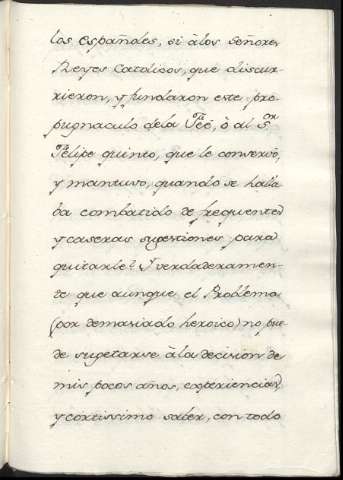 los Españoles, si à los Señores
Reyes Catolicos, que discur-
rieron, y fundaron este pro-
pugnaculo de la Feè, ò al S.or
Felipe quinto, que le conservò,
y mantuvo, quando se halla-
ba combatido de frequentes
y caseras sugestiones para
quitarle? Y verdaderamen-
te que aunque el Problema
(por demasiado heroico) no pue-
de sugetarse à la decision de
mis pocos años, experiencias,
y cortissimo saber, con todo